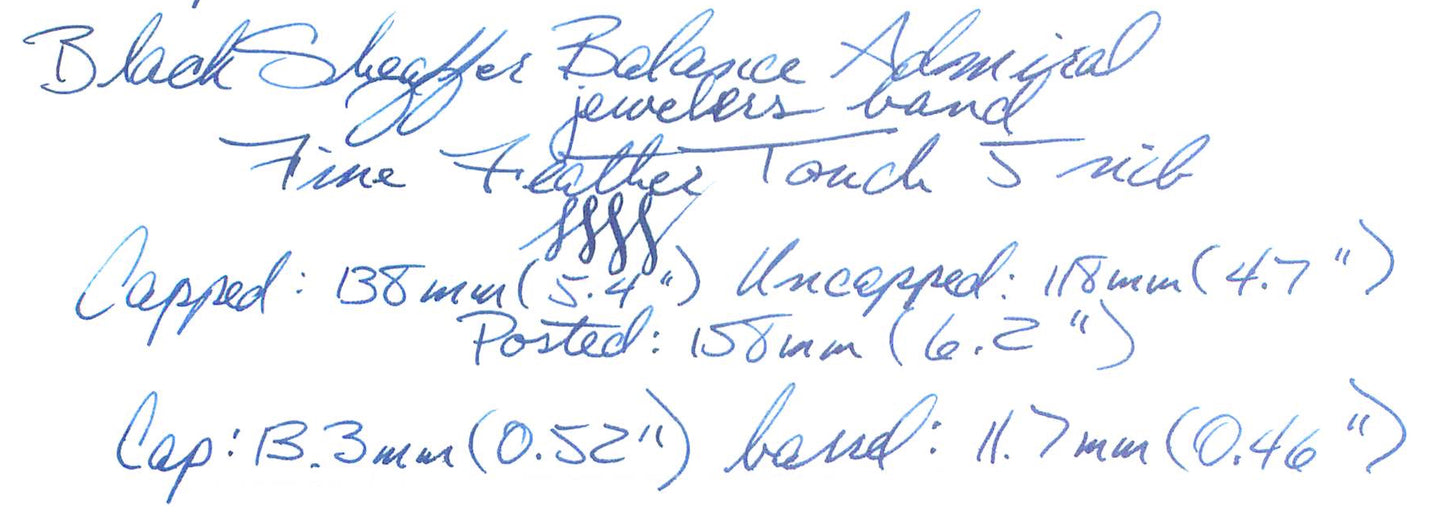 Black Sheaffer Balance Admiral
jewelers band
Fine Feather Touch 5 nib
Capped: 138mm (5.4") Uncapped: 118mm (4.7")
Posted: 158mm (6.2")
Cap: 13.3mm (0.52") barrel: 11.7mm (0.46")